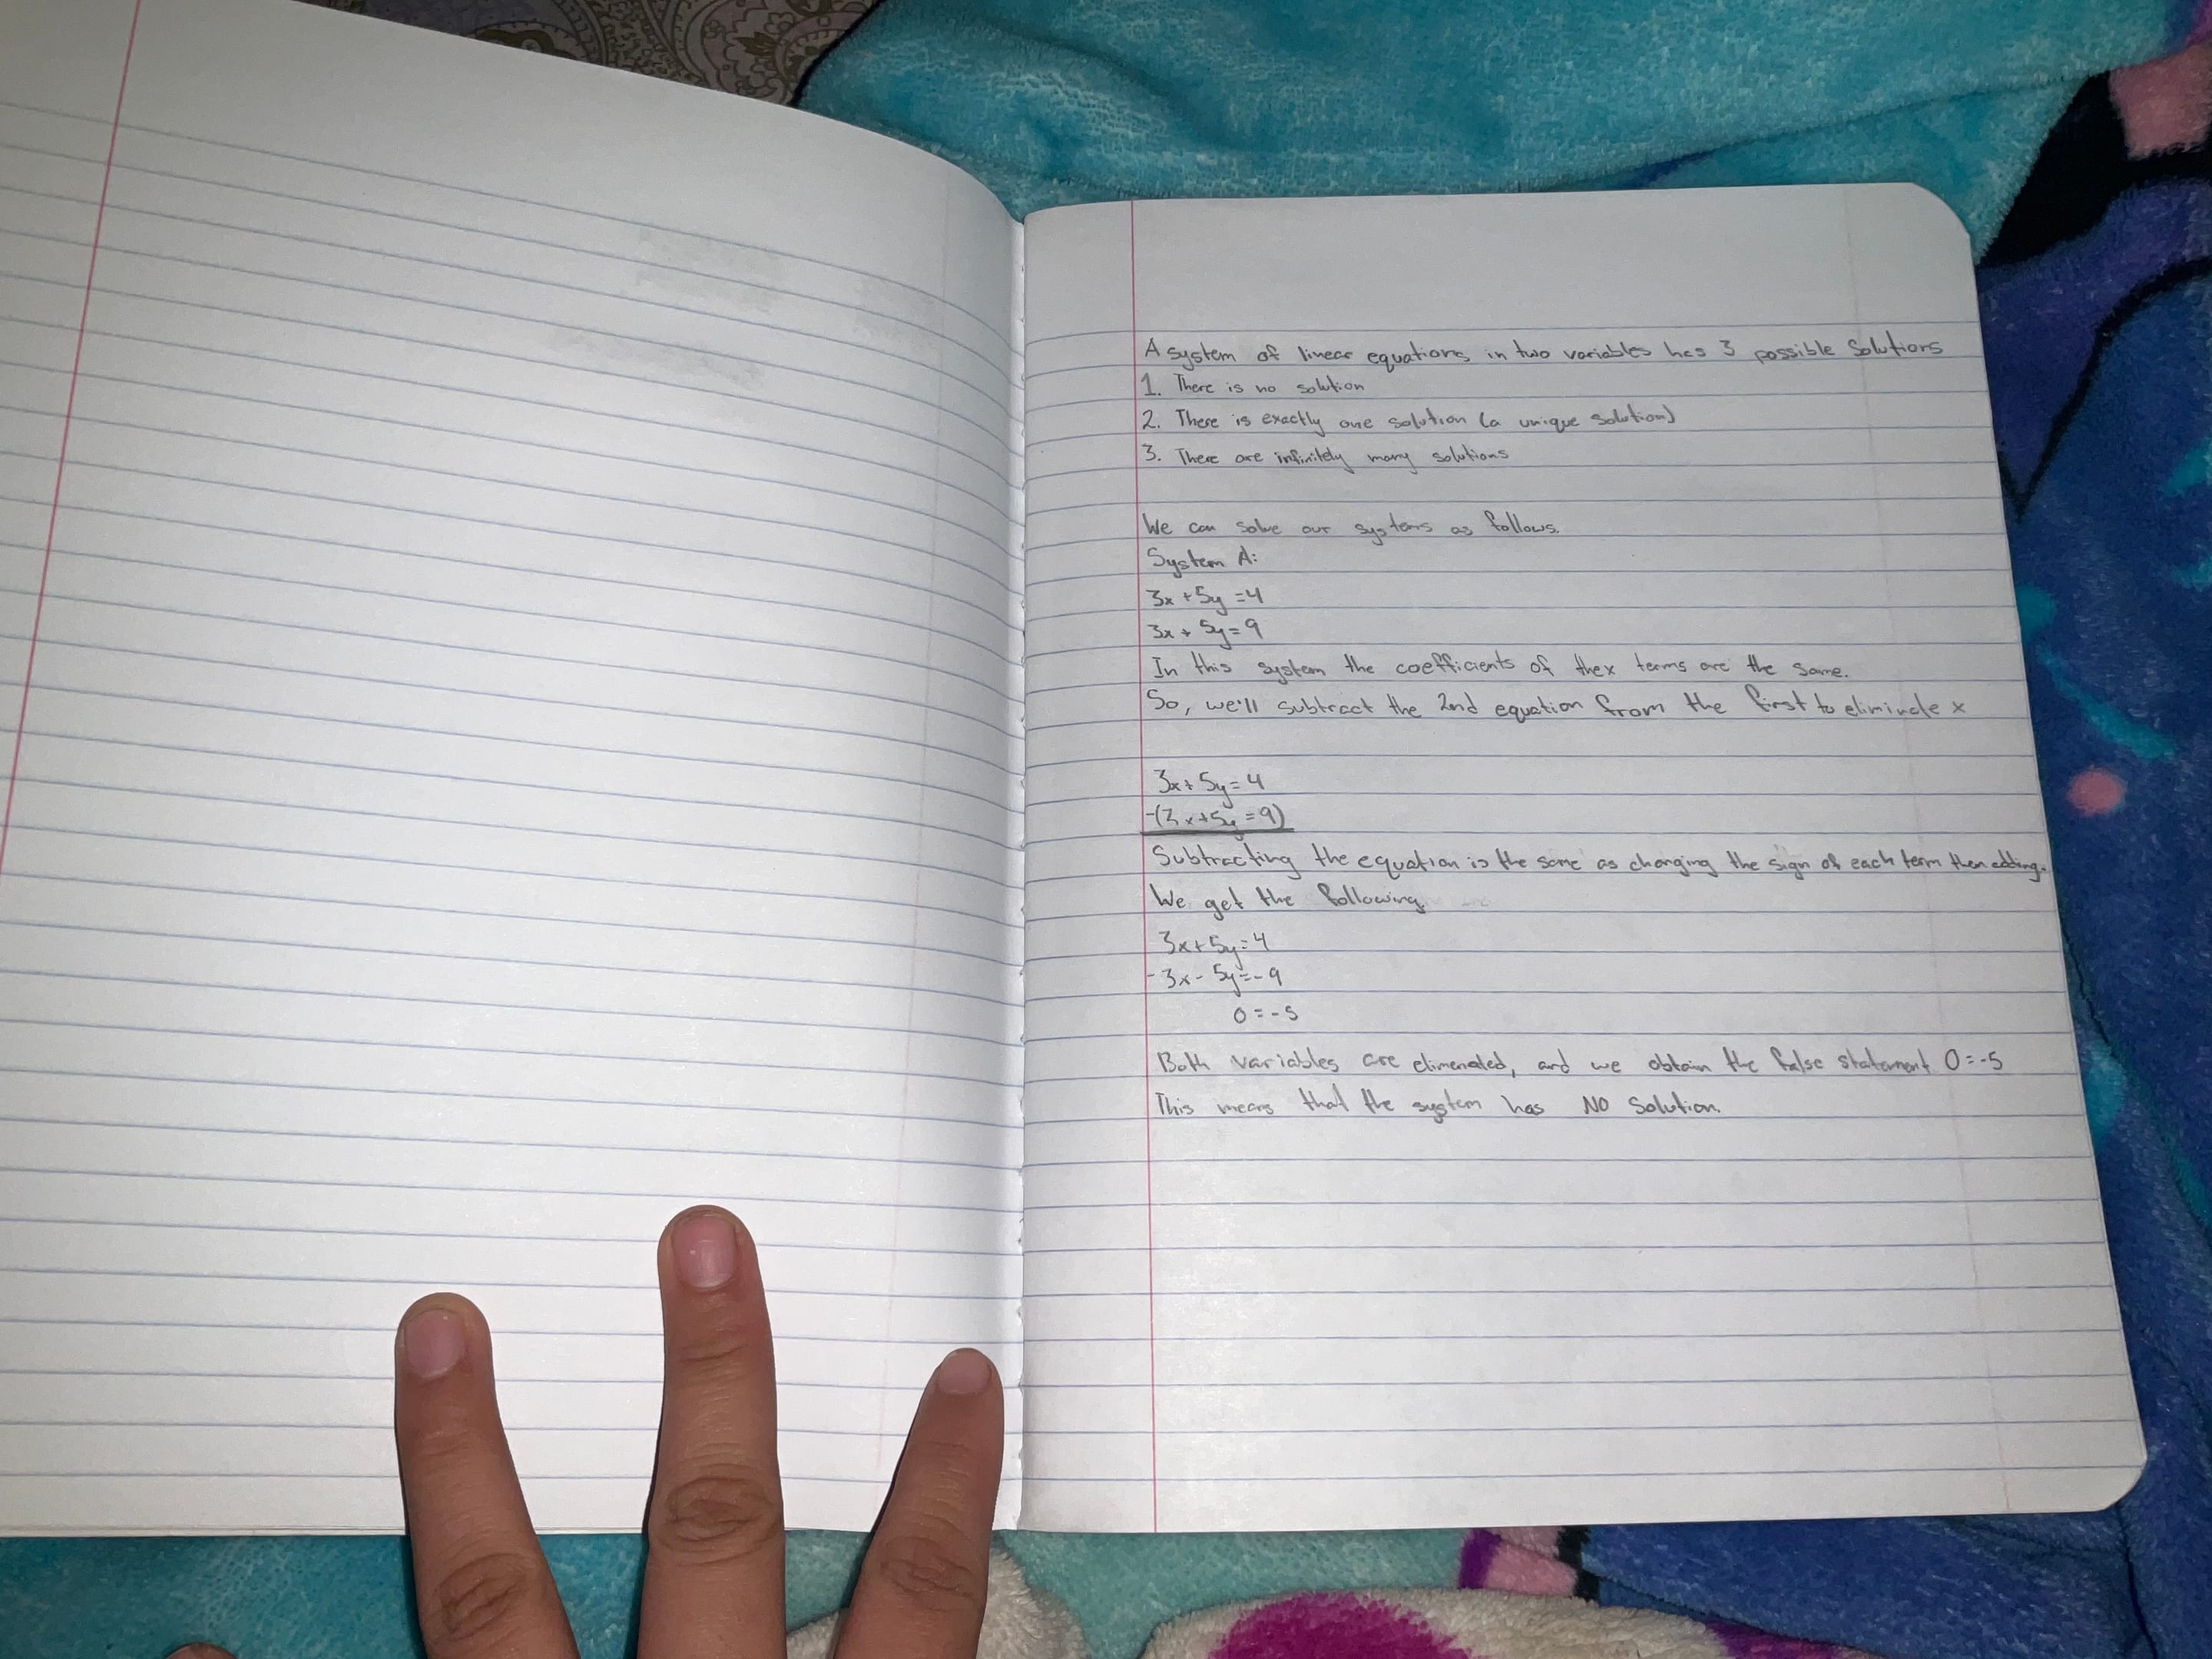 A system of linear equations in two variables has 3 possible Solutions
1. There is no solution
2. There is exactly one solution (a unique solution)
3. There are infinitely many solutions
We can solve our systems as follows.
System A:
3x + 5y = 4
3x + 5y = 9
In this system the coefficients of the x terms are the same.
So, we'll subtract the 2nd equation from the first to eliminate x
3x + 5y = 4
-(3x + 5y = 9)
Subtracting the equation is the same as changing the sign of each term then adding.
We get the following
3x + 5y = 4
-3x - 5y = -9
0 = -5
Both variables are elimenated, and we obtain the false statement 0 = -5
This means that the system has NO Solution.